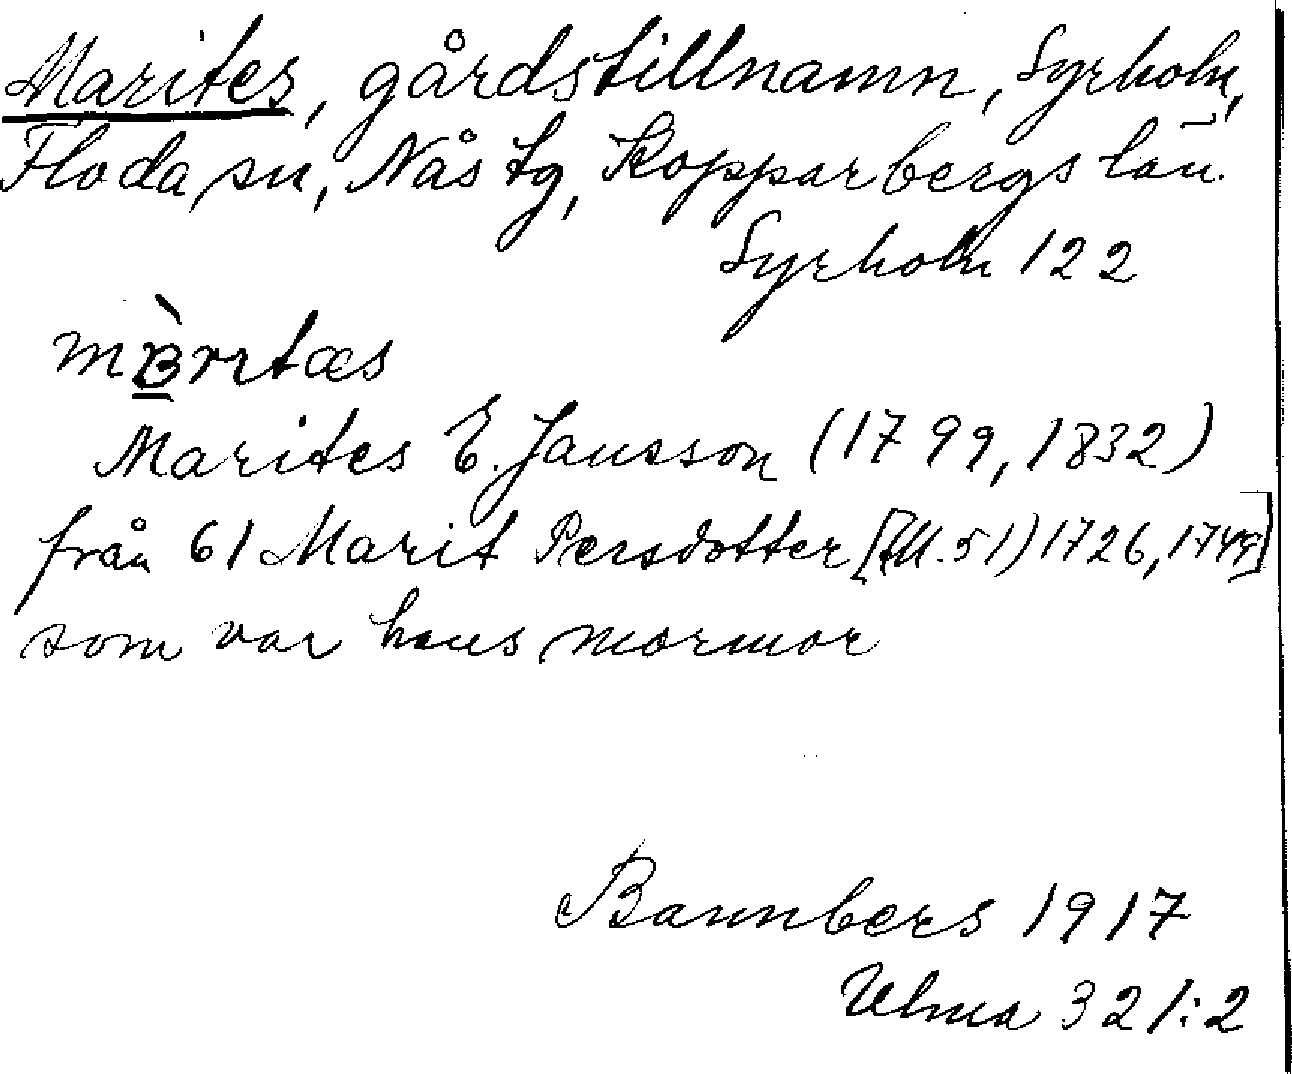 Marites, gårdstillnamn, Syrholm,
Floda sn, Nås tg, Kopparbergs län.
Syrholm 122
mɞ̀rrtæs
Marites E. Jansson (1799, 1832)
från 61 Marit Persdotter [(M. 51) 1726, 1747]
som var hans mormor
Bannbers 1917
Ulma 321:2